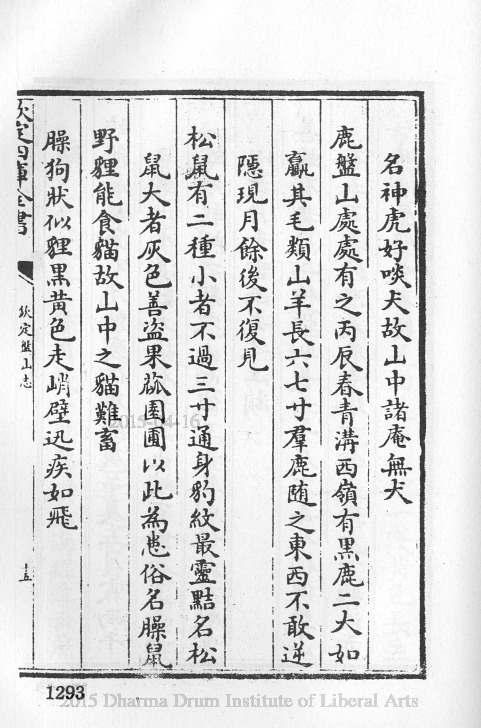 名神虎好啖犬故山中諸庵無犬
鹿盤山處處有之丙辰春青溝西嶺有黑鹿二大如
羸其毛類山羊長六七寸羣鹿随之東西不敢逆
隱現月餘後不復見
松鼠有二種小者不過三寸通身豹紋最靈黠名松
鼠大者灰色善盗果蓏園圃以此為患俗名臊鼠
野貍能食貓故山中之貓難畜
臊狗狀似貍黑黄色走峭壁迅疾如飛
欽定四庫全書
欽定盤山志
十五
2015-04-16
1293
2015 Dharma Drum Institute of Liberal Arts